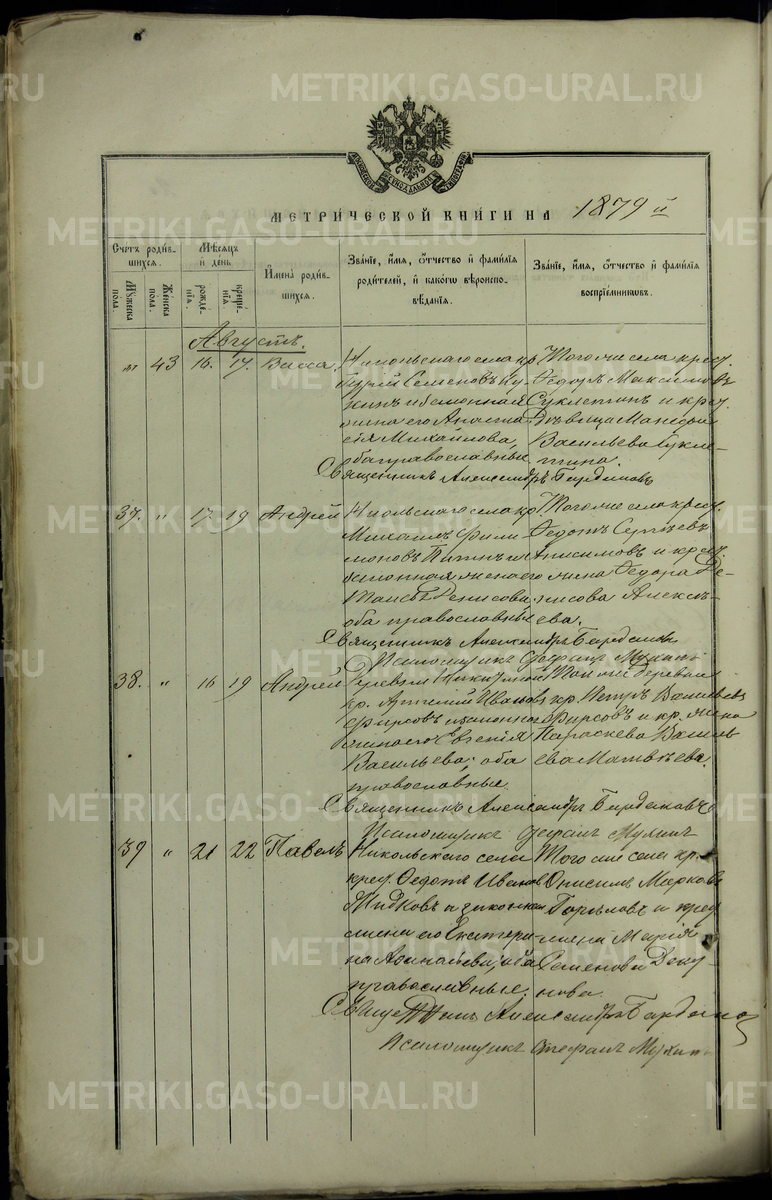 METRIKI.GASO-URAL.RU
МЕТРИЧЕСКОЙ КНИГИ НА 1879 й
Счетъ родившихся.
Мужеска пола.
Женска пола.
Мѣсяцъ и день
рождения.
крещения.
Имена родившихся.
Званіе, имя, отчество и фамилія родителей, и какого вѣроисповѣданія.
Званіе, имя, отчество и фамилія воспріемниковъ.
Августъ.
" 43 16. 17. Васса
Никольскаго села кр.
Гурій Семеновъ
и законная
жена его Анаста
сія Михайлова,
оба православные
Тогоже села крес.
Ѳедоръ Максимовъ
Суклетинъ и крес.
дѣвица
Васильева Сукле-
тина.
Священникъ Александръ Бардаковъ
37. " 17 19 Андрей
Никольскаго села кр.
Михаилъ Фили
моновъ и
законная жена его
Денисова,
оба православные
Тогоже села крес.
Ѳедотъ Сергѣевъ
Анисимовъ и крес.
жена Ѳедора Де-
нисова Алексѣ-
ева.
Священникъ Александръ Бардаковъ
Псаломщикъ Стефанъ Мухинъ
38. " 16 19 Андрей
Деревни Никитиной
кр. Артемій Ивановъ
Фирсовъ и законная
жена его Евгенія
Васильева; оба
православные.
Той же деревни
кр. Петръ Васильевъ
Фирсовъ и кр. жена
Параскева Василь
ева Матвѣева.
Священникъ Александръ Бардаковъ
Псаломщикъ Стефанъ Мухинъ
39 " 21 22 Павелъ
Никольскаго села
крес. Ѳедотъ Ивановъ
Жидковъ и законная
жена его Екатери-
на Аѳанасьева, оба
православные.
Того же села кр.
Онисимъ Марковъ
Горѣловъ и крес.
жена Марія
Семенова Доку-
нова.
Священникъ Александръ Бардаковъ
Псаломщикъ Стефанъ Мухинъ